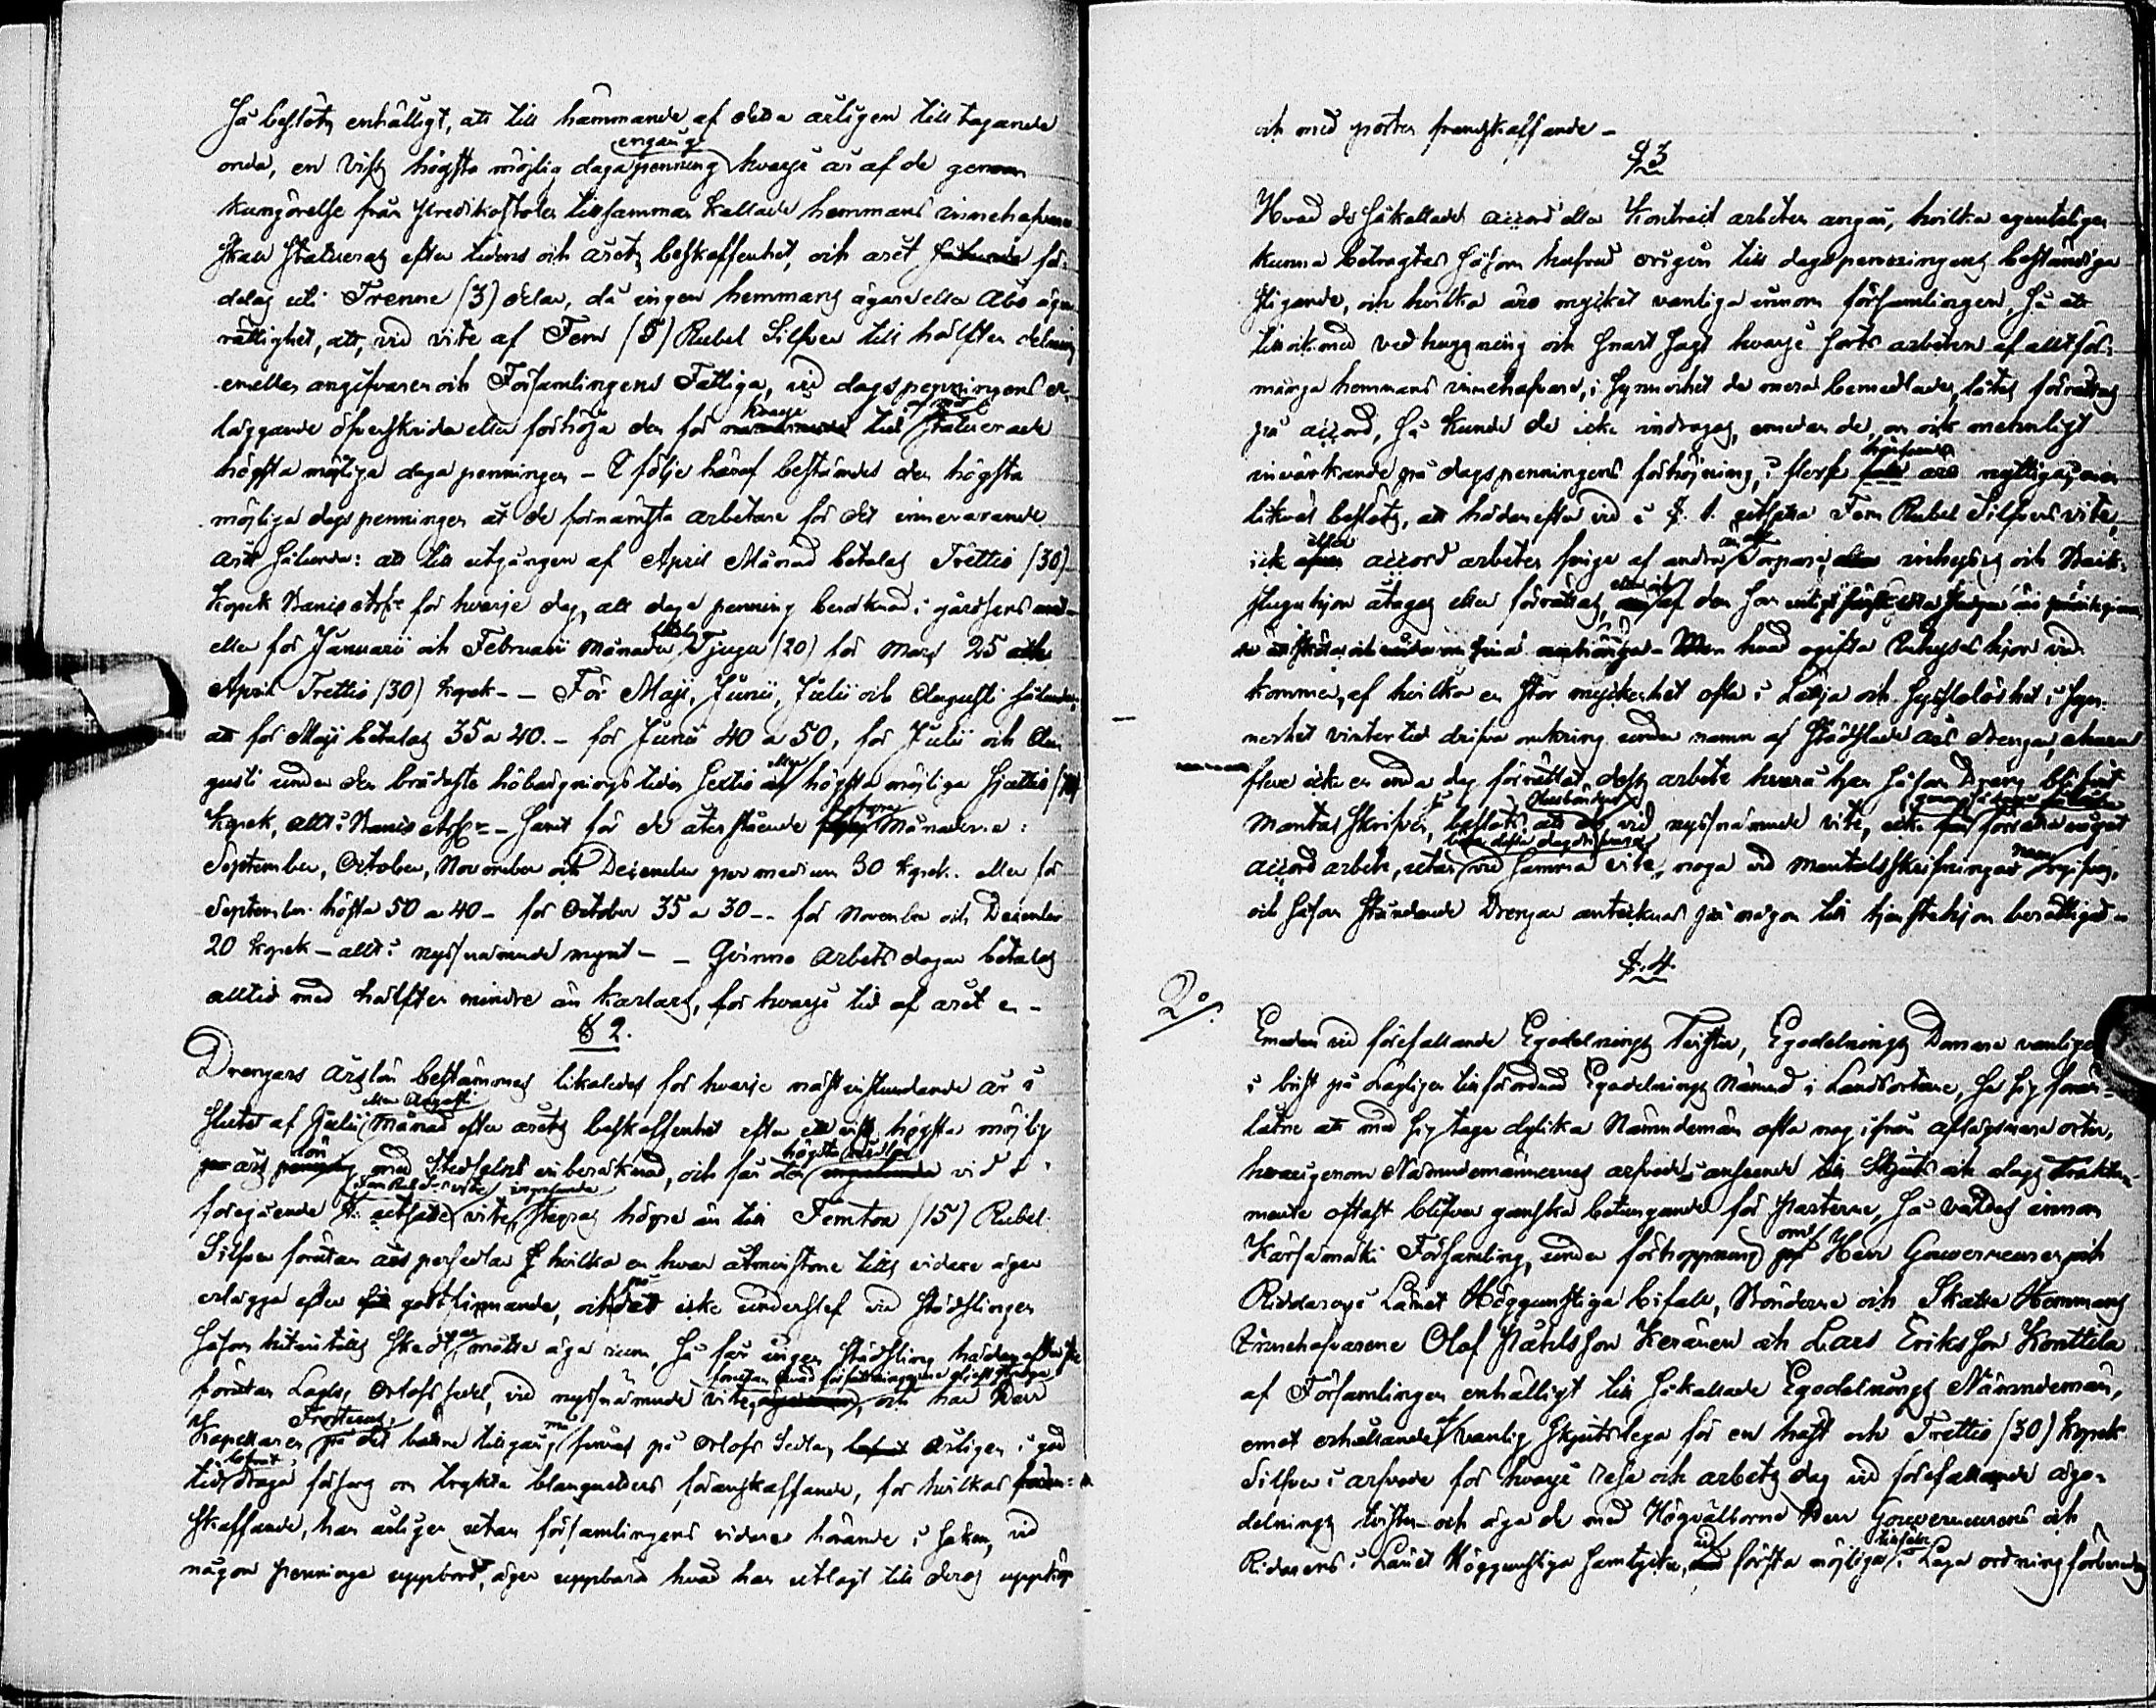 Så beslöts enhälligt, att till hämmande af detta årligen tilltagande
onda, en viss högsta möjlig dagapenning engång hvarje år af de genom
kungörelse från Predikostolen tillsamman kallade hemmans innehafvare
skall statueras efter tidens och årets beskaffenhet, och året för-
delas uti Trenne (3) delar, då ingen hemmans ägare eller Åbo äger
rättighet, att, vid vite af Fem (5) Rubel Silfver till hälften delning
emellan angifvaren och Församlingens Fattiga, vid dagspenningens er-
läggande öfverskrida eller förhöja den för hvarje tid statuerade
högsta möjliga daga penningen - I följe häraf bestämdes den högsta
möjliga dagspenningen åt de förnämsta arbetare för det innevarande
året sålunda: att till utgången af April Månad betalas Trettio (30)
Kopek för hvarje dag, all daga penning beräknad i gårdsens
eller för Januarii och Februarii Månader Tjugu (20) för Mars 25 och
April Trettio (30) Kopek - - För Maji, Junii, Julii och Augusti sålunda
att för Maji betalas 35 a 40. - för Junii 40 a 50, för Julii och Au-
gusti under den brådaste höbergnings tiden Sextio eller högsta möjliga Sjuttio (70)
Kopek, allt i - Samt för de återstående Månaderne:
September, October, November och December per medium 30 Kopek. eller för
September högsta 50 a 40 - för October 35 a 30 - - för November och December
20 Kopek - allt i nyssnämnde mynt - - Qvinno Arbets dagar betalas
alltid med hälften mindre än karlars, för hvarje tid af året -
§ 2.
Drengars årslön bestämmes likaledes för hvarje näst instundande år i
slutet af Julii eller Augusti Månad efter årets beskaffenhet efter en viss högsta möjlig
års lön med Stedselns inberäknad, och får den högsta vid i
föregående § utsatte vite, ingalunda stegras högre än till Femton (15) Rubel
Silfver förutan hvilka en hvar åtminstone tills vidare äger
erlägga efter godtfinnande, och på det icke underslef vid städslingen
såsom hitintills skedt måtte äga rum, så får ingen städsling hädanefter ske
förutan Laglig Orlofssedel, vid nyssnämnde vite, och har Herr
Kapellanen Frosterus på det bättre tillgång må finnas på Orlofs Sedlar, årligen i god
tid draga försorg om tryckte blanquetters föranskaffande, för hvilkas
skaffande, han årligen utan församlingens vidare hörande i saken, vid
någon pennings uppbörd, äger uppbära hvad han utlagt till deras uppköp
och med posten framskaffande -
§ 3
Hvad de såkallade accord eller Kontract arbeten angår, hvilka egenteligen
kunna betragtas såsom hufvud origin till dagspenningens beständiga
stigande, och hvilka äro mycket vanliga innom församlingen, så att
till och med vedhuggning och snart sagt hvarje sorts arbeten af alltför
många hemmans innehafvare, i synnerhet de mera bemedlade, låtes förrättas
på accord, så kunde de icke indragas, emedan de, om ock menligt
inverkande på dagspenningens förhöjning, i flere äro nyttiga; men
likväl beslöts, att hädanefter vid i §. 1. utsatta Fem Rubel Silfvers vite,
icke accord arbeten finge af andra än af Torpare, inhyses och Back-
stugu hjon åtagas eller förrättas,
Men hvad ogifta Inhyses hjon vid-
kommer, af hvilka en stor myckenhet ofta i Lättja och Sysslolöshet i syn-
nerhet vintertid drifva omkring under namn af Städslade års drengar, ehuru
flere icke en enda dag förrättat dess arbete hvars han såsom Dreng blifvit
Mantalsskrifven, så beslöts, att vid nyssnämnde vite, icke förrätta något
accord arbete, utan vid samma vite, noga vid Mantalsskrifningar angifvas,
och såsom Städslade Drengar antecknas på någon till tjenstehjon berättigad -
§. 4.
2o/.
Emedan vid förefallande Egodelnings Tvister, Egodelnings Domare vanligen
i brist på Lagligen tillförordnad Egodelnings Nämnd i Landsorterne, se sig föran-
låtne att med sig taga dylika Nämndemän ofta nog ifrån aflägsnare orter,
hvarigenom Nämndemännernes arfvode i anseende till Skjuts och dags Traktam-
mente oftast blifver ganska betungande för Parterne, så valdes innom
Kärsämäki Församling, under förhoppning om Herr Gouverneuren och
Riddarens i Länet Höggunstiga bifall, Bönderne och Skatte Hemmans
Innehafvarene Olof Påhlsson Keränen och Lars Eriksson Konttila
af Församlingen enhälligt till såkallade Egodelnings Nämndemän,
emot erhållande af vanlig Skjutslega för en häst och Trettio (30) Kopek
Silfver i arfvode för hvarje resa och arbets dag vid förefallande ägo-
delnings tvister - och äga de med Högvälborne Herr Gouverneurens och
Riddarens i Länet Höggunstiga samtycke, vid första möjliga tillfälle i Laga ordning förbindas